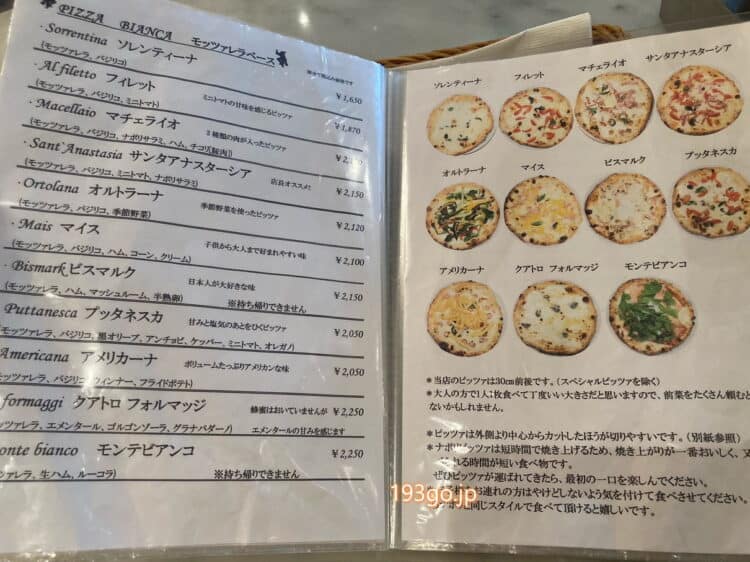 PIZZA BIANCA モッツァレラベース
・Sorrentina ソレンティーナ
(モッツァレラ、バジリコ) ¥1,650
・Al filetto フィレット ミニトマトの甘味を感じるピッツァ
(モッツァレラ、バジリコ、ミニトマト) ¥1,870
・Macellaio マチェライオ 2種類の肉が入ったピッツァ
(モッツァレラ、バジリコ、ナポリサラミ、ハム、チコリ[豚肉])
・Sant'Anastasia サンタアナスターシア 店長オススメ!
(モッツァレラ、バジリコ、ミニトマト、ナポリサラミ) ¥2,150
・Ortolana オルトラーナ 季節野菜を使ったピッツァ
(モッツァレラ、バジリコ、季節野菜) ¥2,120
・Mais マイス 子供から大人まで好まれやすい味
(モッツァレラ、バジリコ、ハム、コーン、クリーム) ¥2,100
・Bismark ビスマルク 日本人が大好きな味
(モッツァレラ、ハム、マッシュルーム、半熟卵) ※持ち帰りできません ¥2,150
Puttanesca プッタネスカ 甘みと塩気のあとをひくピッツァ ¥2,050
モッツァレラ、バジリコ、黒オリーブ、アンチョビ、ケッパー、ミニトマト、オレガノ)
Americana アメリカーナ ボリュームたっぷりアメリカンな味 ¥2,050
ツァレラ、バジリコ、ウィンナー、フライドポテト)
formaggi クアトロ フォルマッジ 蜂蜜はおいていませんが ¥2,250
ツァレラ、エメンタール、ゴルゴンゾーラ、グラナパダーノ) エメンタールの甘みを感じます
onte bianco モンテビアンコ ¥2,250
ツァレラ、生ハム、ルーコラ) ※持ち帰りできません
ソレンティーナ フィレット マチェライオ サンタアナスターシア
オルトラーナ マイス ビスマルク プッタネスカ
アメリカーナ クアトロ フォルマッジ モンテビアンコ
＊当店のピッツァは30cm前後です。(スペシャルピッツァを除く)
＊大人の方で1人1枚食べて丁度いい大きさだと思いますので、前菜をたくさん頼むと
ないかもしれません。
＊ピッツァは外側より中心からカットしたほうが切りやすいです。(別紙参照)
＊ナポリピッツァは短時間で焼き上げるため、焼き上がりが一番おいしく、又
れる時間が短い食べ物です。
ぜひピッツァが運ばれてきたら、最初の一口を楽しんでください。
お連れの方はやけどしないよう気を付けて食べさせてください。
同じスタイルで食べて頂けると嬉しいです。
193go.jp